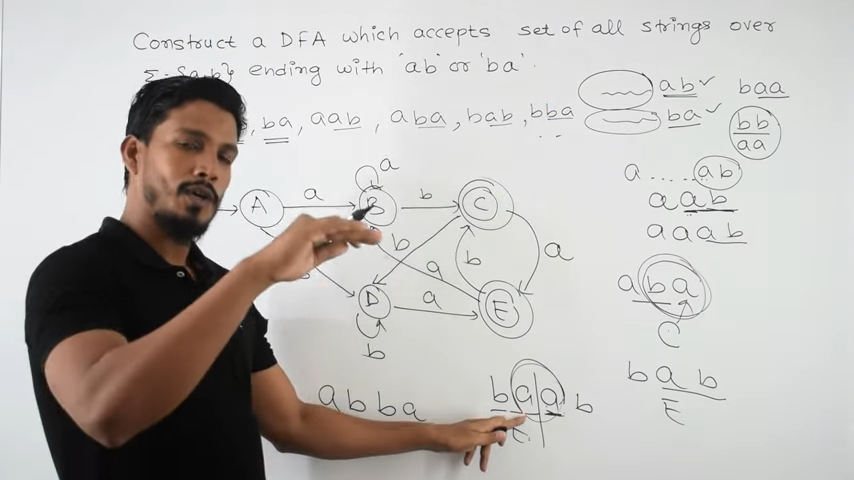 Construct a DFA which accepts set of all strings over
Σ = {a,b} ending with 'ab' or 'ba'.
ab ✓ baa
, ba, aab, aba, bab, bba ba ✓ bb
... aa
a.....ab
aab
aaab
a a
A B b C
b a a
b a b a
b
D a E C
b
b a b
E
abba b a a b
E